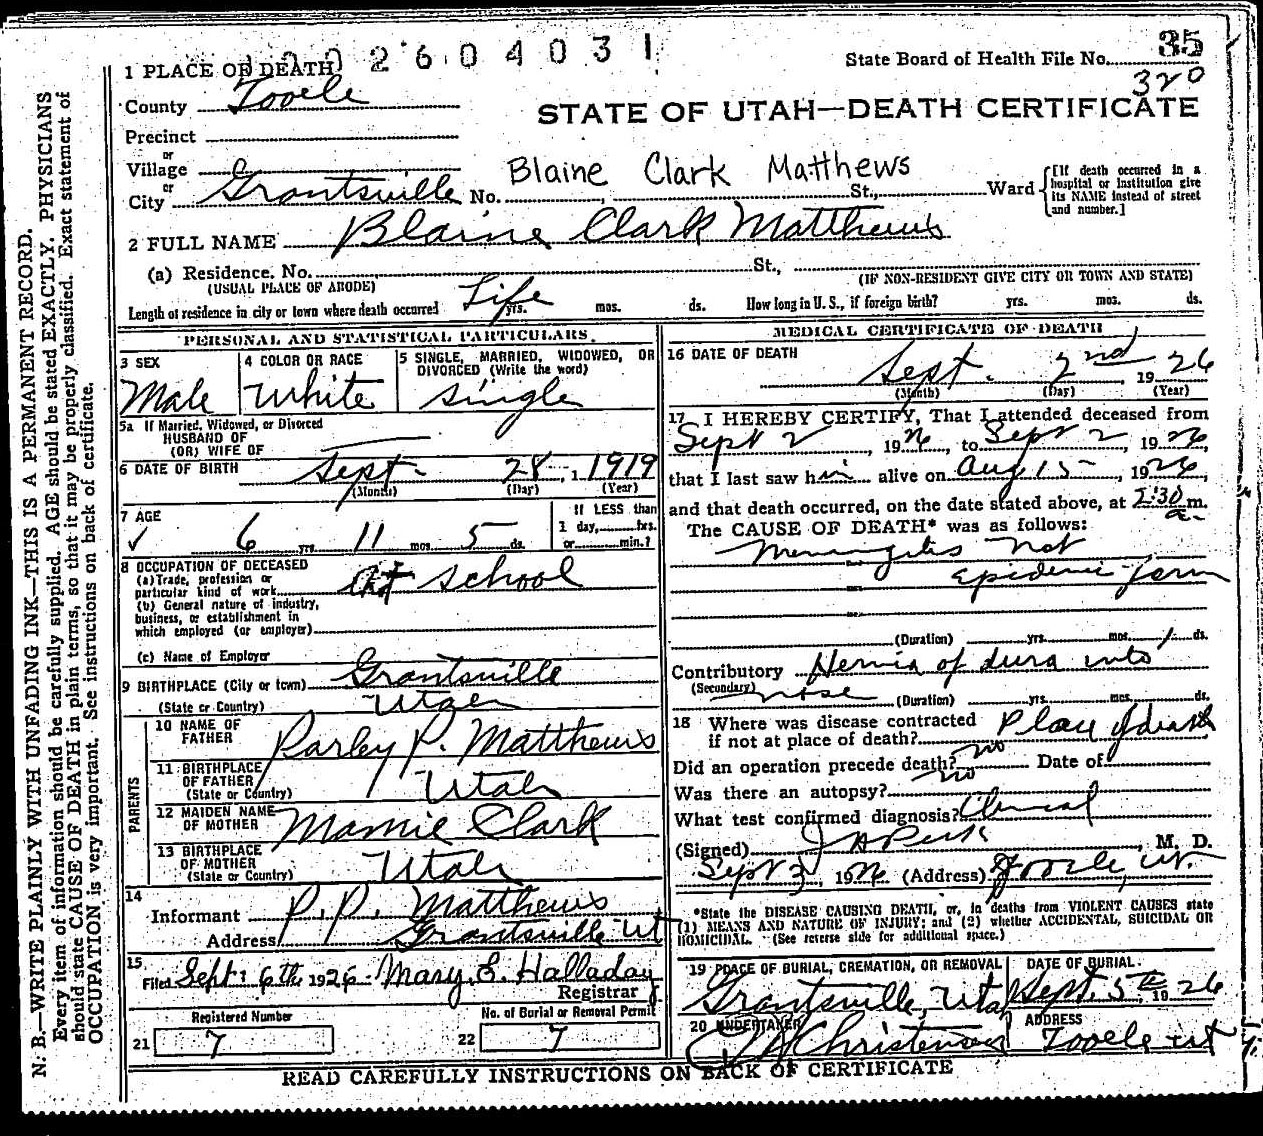 1 PLACE OF DEATH 1002604031
State Board of Health File No. 35
320
County Tooele
STATE OF UTAH—DEATH CERTIFICATE
Precinct
or
Village
Blaine Clark Matthews
or
City Grantsville No. St., Ward
[If death occurred in a hospital or institution give its NAME instead of street and number.]
2 FULL NAME Blaine Clark Matthews
(a) Residence. No. St.,
(USUAL PLACE OF ABODE) (IF NON-RESIDENT GIVE CITY OR TOWN AND STATE)
Length of residence in city or town where death occurred Life yrs. mos. ds. How long in U. S., if foreign birth? yrs. mos. ds.
PERSONAL AND STATISTICAL PARTICULARS.
3 SEX
Male
4 COLOR OR RACE
White
5 SINGLE, MARRIED, WIDOWED, OR
DIVORCED (Write the word)
single
5a If Married, Widowed, or Divorced
HUSBAND OF
(OR) WIFE OF
6 DATE OF BIRTH Sept. 28, 1919
(Month) (Day) (Year)
7 AGE
✓ 6 yrs 11 mos. 5 ds.
If LESS than
1 day, hrs.
or min.?
8 OCCUPATION OF DECEASED
(a) Trade, profession or
particular kind of work At school
(b) General nature of industry,
business, or establishment in
which employed (or employer)
(c) Name of Employer
9 BIRTHPLACE (City or town) Grantsville
(State or Country) Utah
PARENTS
10 NAME OF
FATHER Parley P. Matthews
11 BIRTHPLACE
OF FATHER
(State or Country) Utah
12 MAIDEN NAME
OF MOTHER Mamie Clark
13 BIRTHPLACE
OF MOTHER
(State or Country) Utah
14
Informant P. P. Matthews
Address Grantsville Ut
15
Filed Sept. 6th 1926 Mary E. Halladay
Registrar
Registered Number
21 7
No. of Burial or Removal Permit
22 7
MEDICAL CERTIFICATE OF DEATH
16 DATE OF DEATH
Sept. 2nd 1926
(Month) (Day) (Year)
17 I HEREBY CERTIFY, That I attended deceased from
Sept 2, 1926, to Sept 2, 1926,
that I last saw him alive on Aug 15, 1926,
and that death occurred, on the date stated above, at 2:30 m.
a.
The CAUSE OF DEATH* was as follows:
Meningitis not
epidemic form
(Duration) yrs. mos. 1 ds.
Contributory Hernia of dura into
(Secondary) nose (Duration) yrs. mos. ds.
18 Where was disease contracted
if not at place of death? Place of death
Did an operation precede death? no Date of
Was there an autopsy? no
What test confirmed diagnosis? Clinical
(Signed) J A Peck, M. D.
Sept 3, 1926 (Address) Tooele, Ut.
*State the DISEASE CAUSING DEATH, or, in deaths from VIOLENT CAUSES state
(1) MEANS AND NATURE OF INJURY; and (2) whether ACCIDENTAL, SUICIDAL OR
HOMICIDAL. (See reverse side for additional space.)
19 PLACE OF BURIAL, CREMATION, OR REMOVAL
Grantsville, Utah
DATE OF BURIAL
Sept. 5th 1926
20 UNDERTAKER
Christensen
ADDRESS
Tooele Ut
READ CAREFULLY INSTRUCTIONS ON BACK OF CERTIFICATE
N. B.—WRITE PLAINLY WITH UNFADING INK—THIS IS A PERMANENT RECORD.
Every item of information should be carefully supplied. AGE should be stated EXACTLY. PHYSICIANS
should state CAUSE OF DEATH in plain terms, so that it may be properly classified. Exact statement of
OCCUPATION is very important. See instructions on back of certificate.